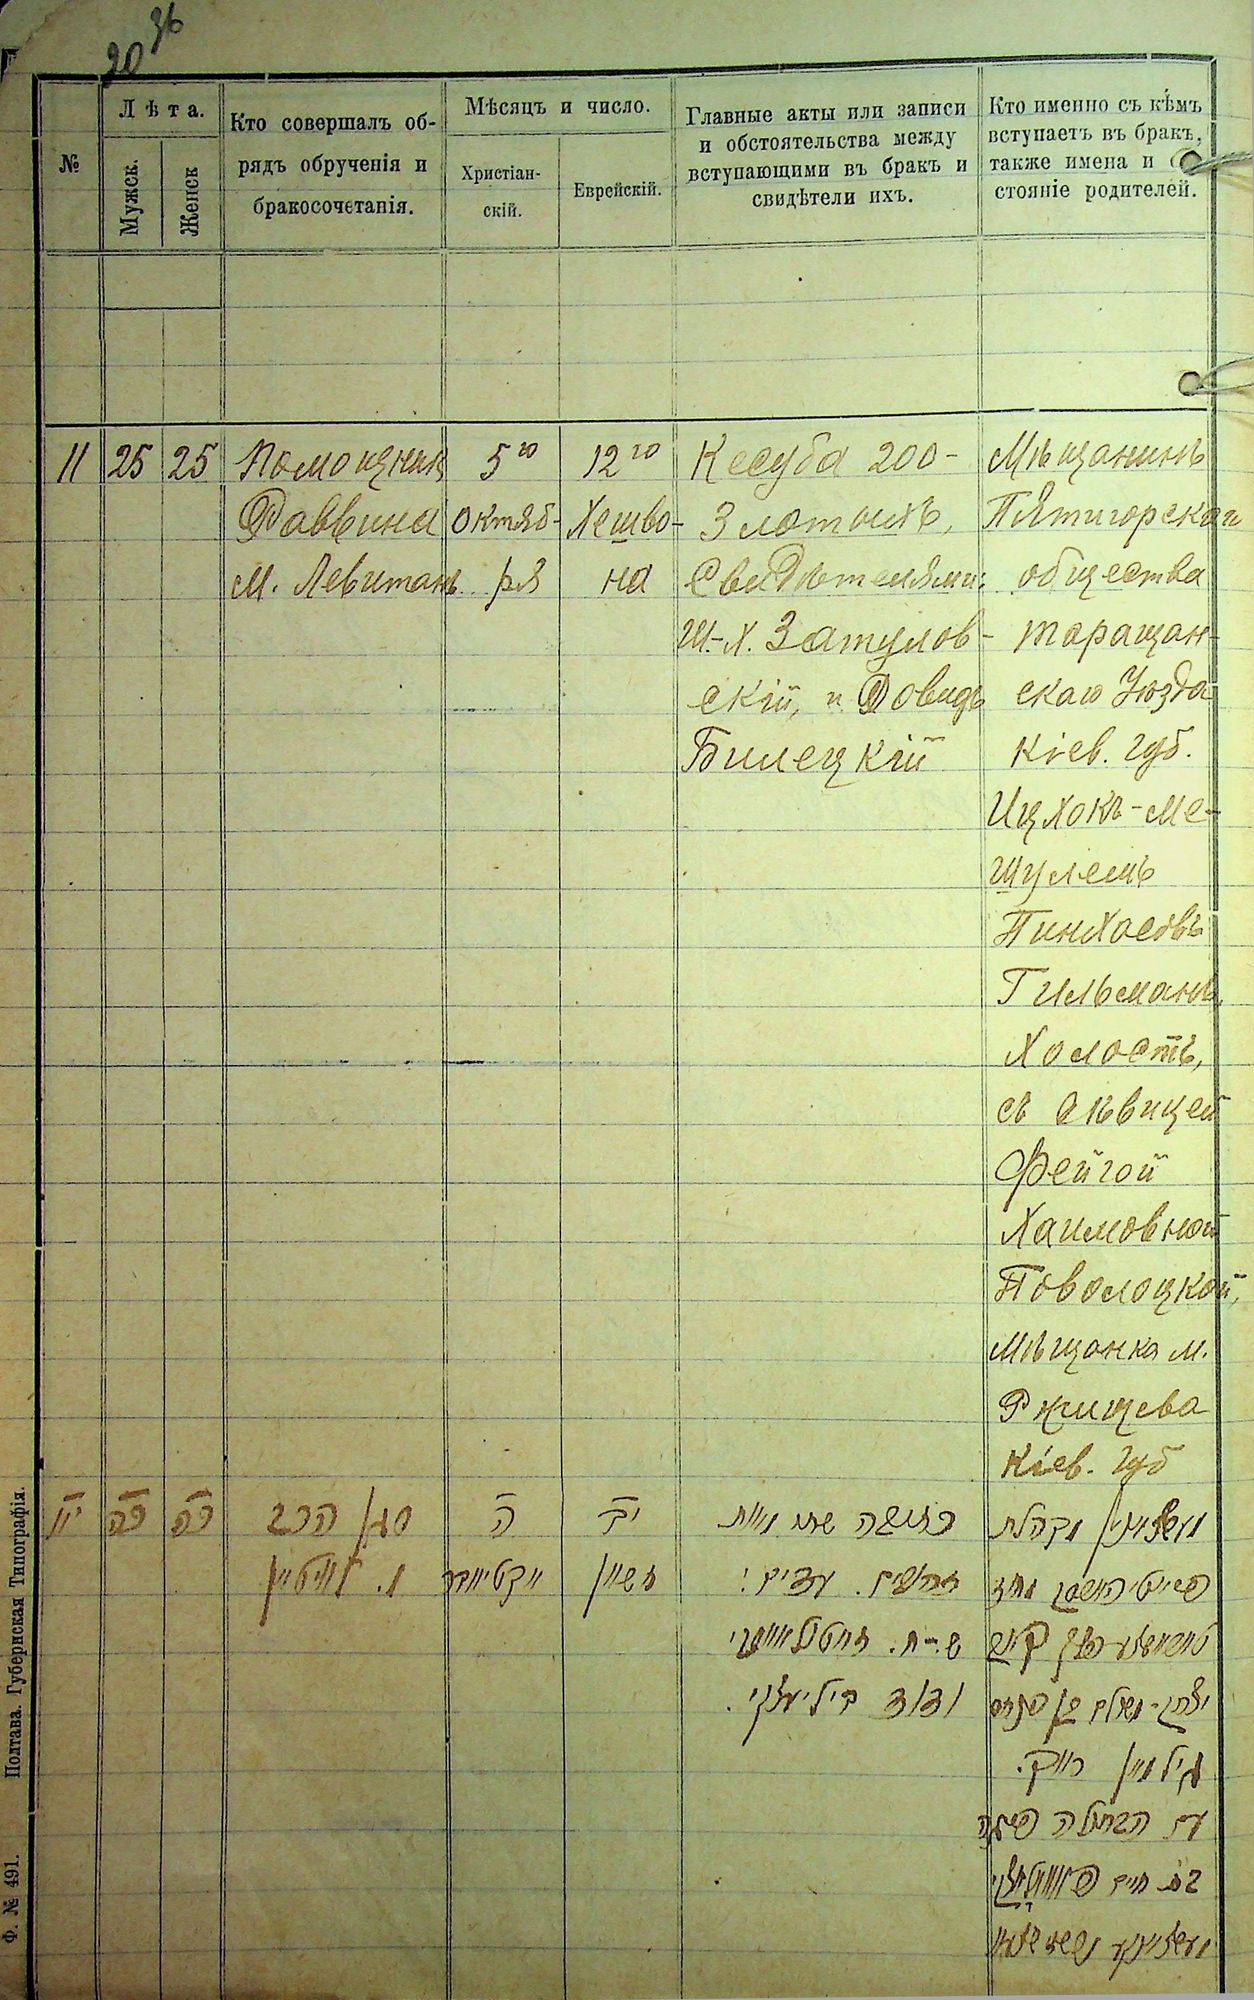 20 36
№
Лѣта.
Мужск.
Женск
Кто совершалъ об-
рядъ обрученія и
бракосочетанія.
Мѣсяцъ и число.
Христіан-
скій.
Еврейскій.
Главные акты или записи
и обстоятельства между
вступающими въ бракъ и
свидѣтели ихъ.
Кто именно съ кѣмъ
вступаетъ въ бракъ,
также имена и со-
стояніе родителей.
11
25
25
Помощник
Раввина
М. Левитанъ
5го
октяб-
ря
12го
Хешво-
на
Кесуба 200-
Злотыхъ,
Свидѣтелями:
Ш.-Х. Затулов-
скій, и Довидъ
Билецкій
Мѣщанинъ
Пятигорскаго
общества
таращан-
скаго Уѣзда
Кіев. губ.
Ицхокъ-Ме-
шулемъ
Пинхасовъ
Гильманъ,
Холостъ,
съ дѣвицей
Фейгой
Хаимовной
Поволоцкой,
Мѣщанка м.
Ржищева
Кіев. Губ
כה
כה
הרב
ה
יב
חשון
עדים:
ודוד ביליעצקי.
גילמאן רווק.
עם הבתולה פייגה
בת חיים
Полтава. Губернская Типографія.
Ф. № 491.